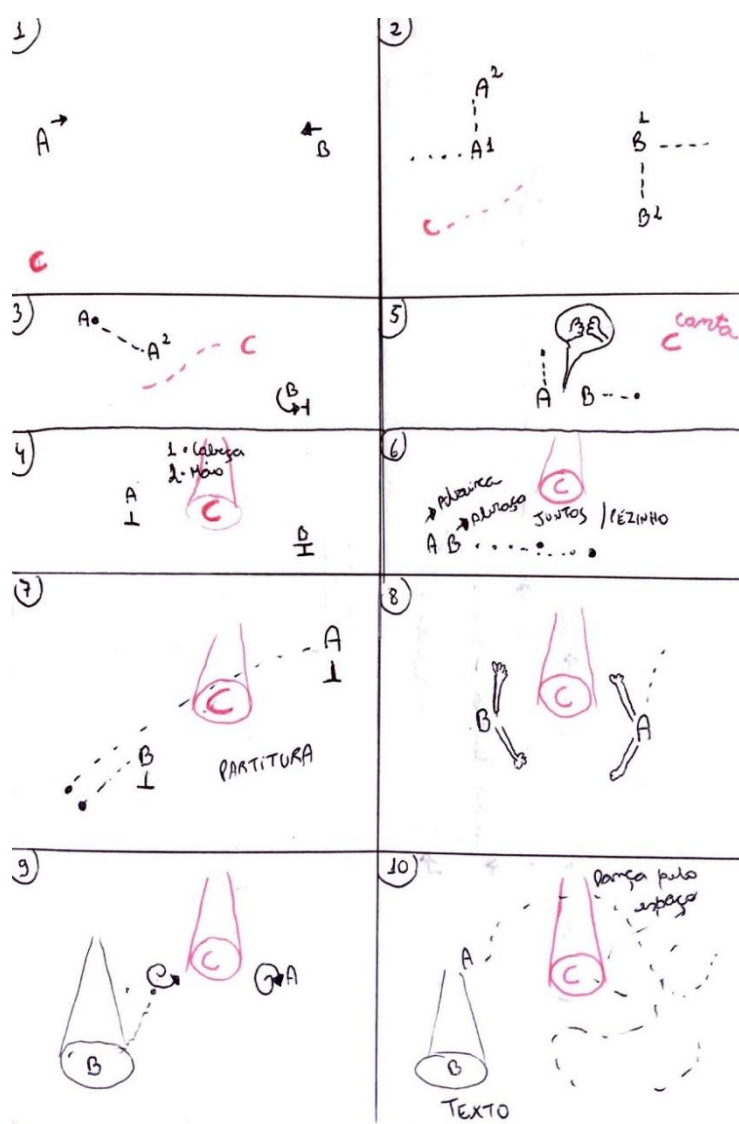 1
A
B
C
2
A2
A1
1
B
B2
C
3
A
A2
C
B
5
canta
C
A B
4
1. Cabeça
2. Mão
A
C
B
6
C
JUNTOS /PÉZINHO
A B
7
A
C
B
PARTITURA
8
C
B
A
9
C
A
B
10
Dança pelo
espaço
A
C
B
TEXTO